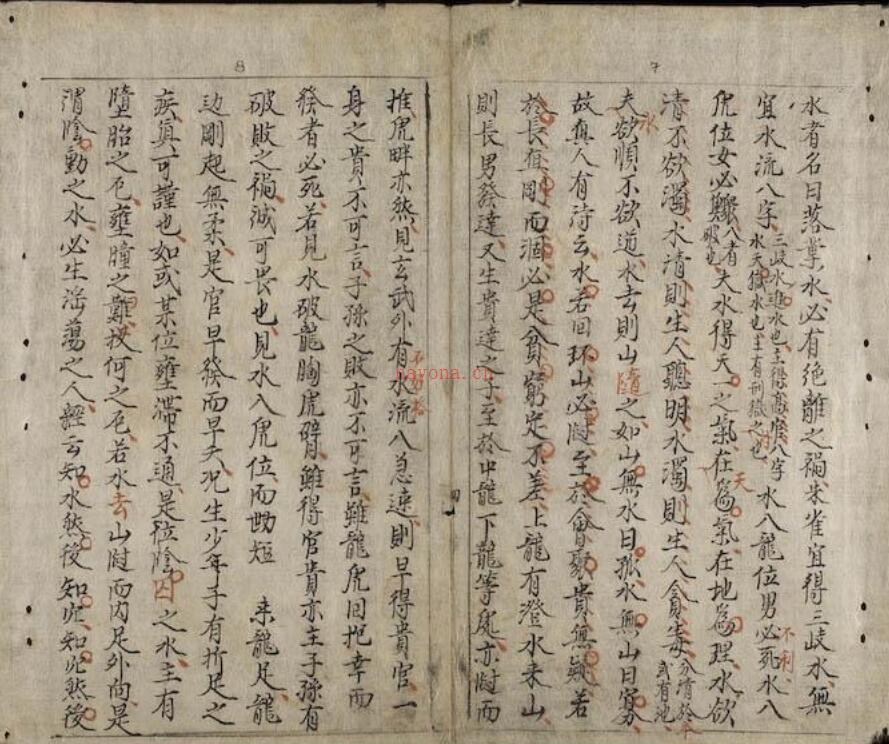 7
水者名曰落業水必有絶離之禍朱雀宜得三歧水無
宜水流八字三歧水進水也主得高官八字
水天獄水也主有刑獄之也 水八龍位男必死水八
不利
虎位女必鰥八者
破也夫水得天一之氣在為氣在地為理水欲
天
清不欲濁水清則生人聽明水濁則生人貪毒
或有池
夫欲順不欲逆水去則山隨之如山無水曰孤水無山曰寡
水
故真人有詩云水若回环山必尉至於會聚貴無疑若
於長直剛而涸必是貧窮定不差上龍有澄水来山
則長男發達又生貴達之子至於中龍下龍等處亦尉而
8
推虎畔亦然見玄武外有水流八急速則早得貴官一
身之貴不可言子孫之敗亦不可言雖龍虎回抱幸而
發者必死若見水破龍胸虎臂雖得官貴亦主子孫有
破敗之禍誠可畏也見水入虎位而勘短 来龍足龍
边剛起無柔是官早發而早夭况生少年子有折足之
疾真可謹也如或某位壅滞不通是位陰囚之水主有
墮胎之厄壅腫之難扠何之厄若水去山尉而内足外向是
謂陰動之水必生滛蕩之人經云知水然後知穴知穴然後
nayona.cn